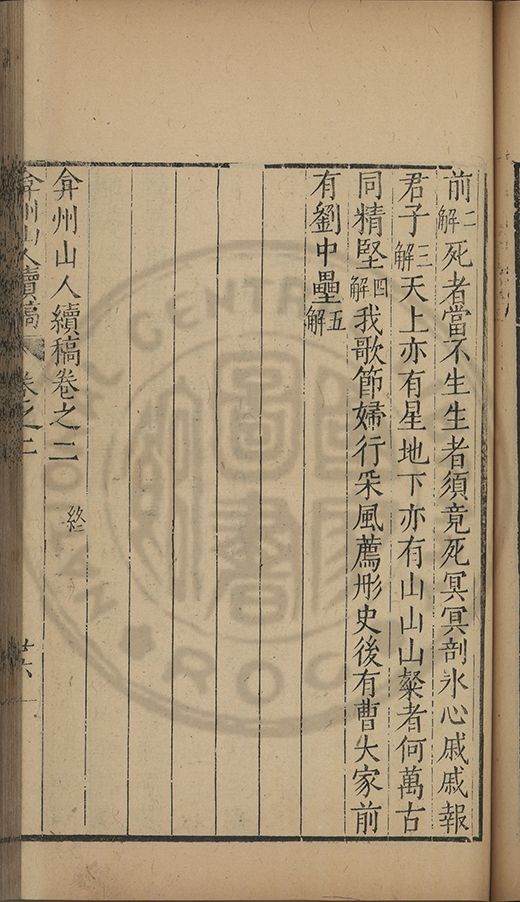 前二解死者當不生生者須竟死冥冥剖氷心戚戚報
君子三解天上亦有星地下亦有山山山粲者何萬古
同精堅四解我歌節婦行采風薦彤史後有曹大家前
有劉中壘五解
弇州山人續稿卷之二 終
弇州山人續稿 卷之二 廿六